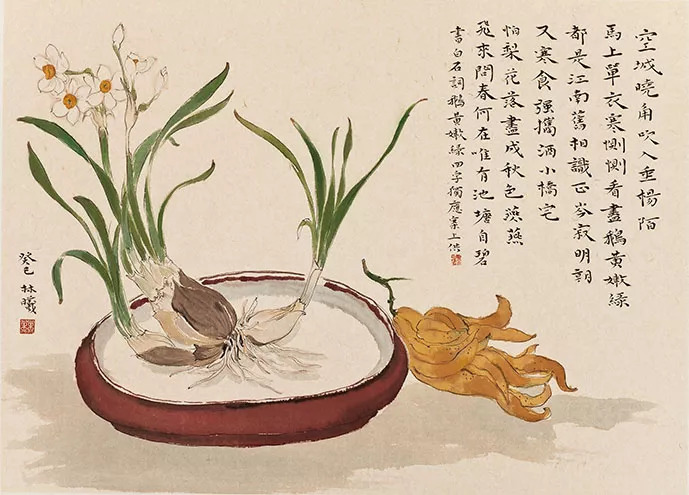 空城曉角吹入垂楊陌
馬上單衣寒惻惻看盡鵝黃嫩綠
都是江南舊相識正岑寂明朝
又寒食強攜酒小橋宅
怕梨花落盡成秋色燕燕
飛來問春何在唯有池塘自碧
書白石詞鵝黃嫩綠四字獨應案上供
癸巳 林曦